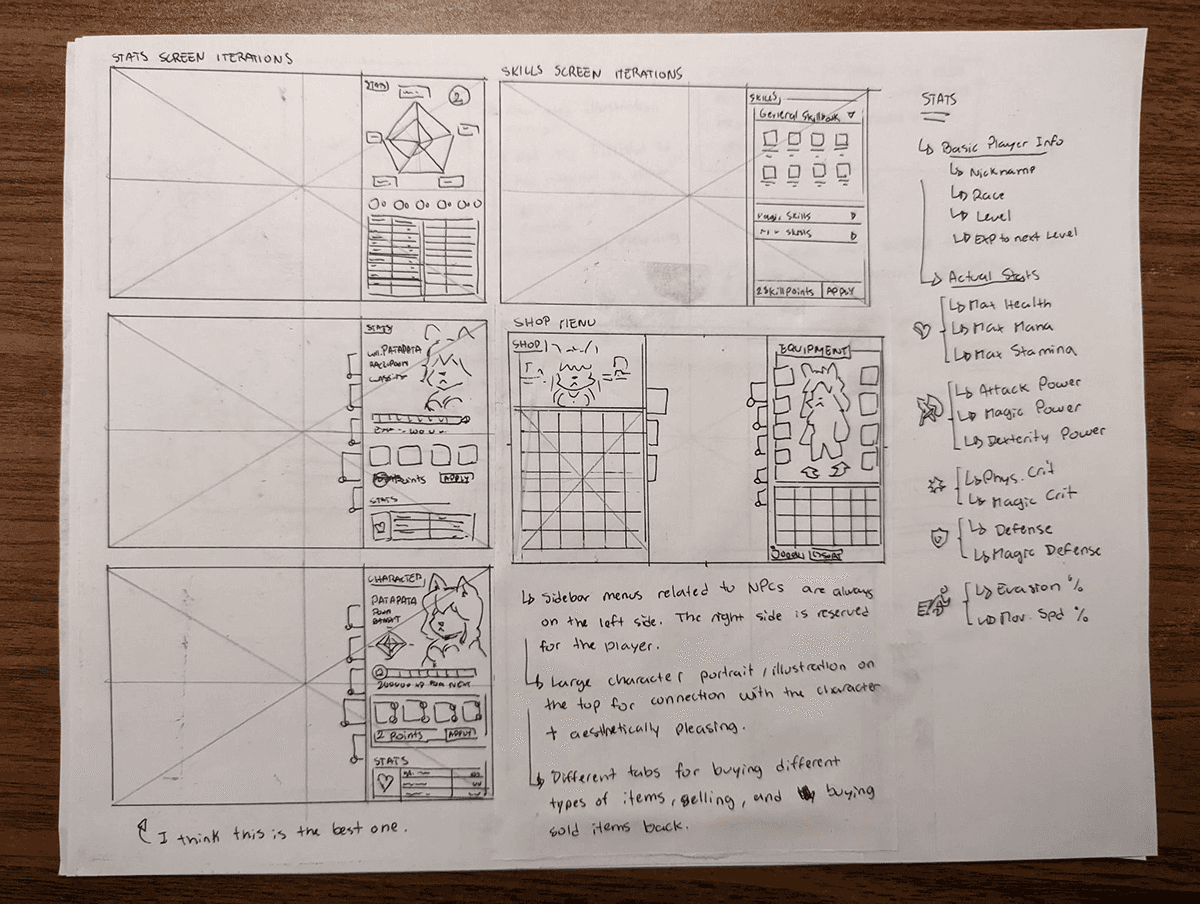 STATS SCREEN ITERATIONS
STATS
2
STATS
PATADATA
APPLY
STATS
CHARACTER
PATAPATA
2 Points
APPLY
STATS
I think this is the best one.
SKILLS SCREEN ITERATIONS
SKILLS
General Skillbook
Magic Skills
Skills
2 Skill Points
APPLY
SHOP MENU
SHOP
EQUIPMENT
Sidebar menus related to NPCs are always
on the left side. The right side is reserved
for the player.
Large character portrait/illustration on
the top for connection with the character
+ aesthetically pleasing.
Different tabs for buying different
types of items, selling, and buying
sold items back.
STATS
Basic Player Info
Nickname
Race
Level
EXP to next Level
Actual Stats
Max Health
Max Mana
Max Stamina
Attack Power
Magic Power
Dexterity Power
Phys. Crit
Magic Crit
Defense
Magic Defense
Evasion %
Mov. Spd %